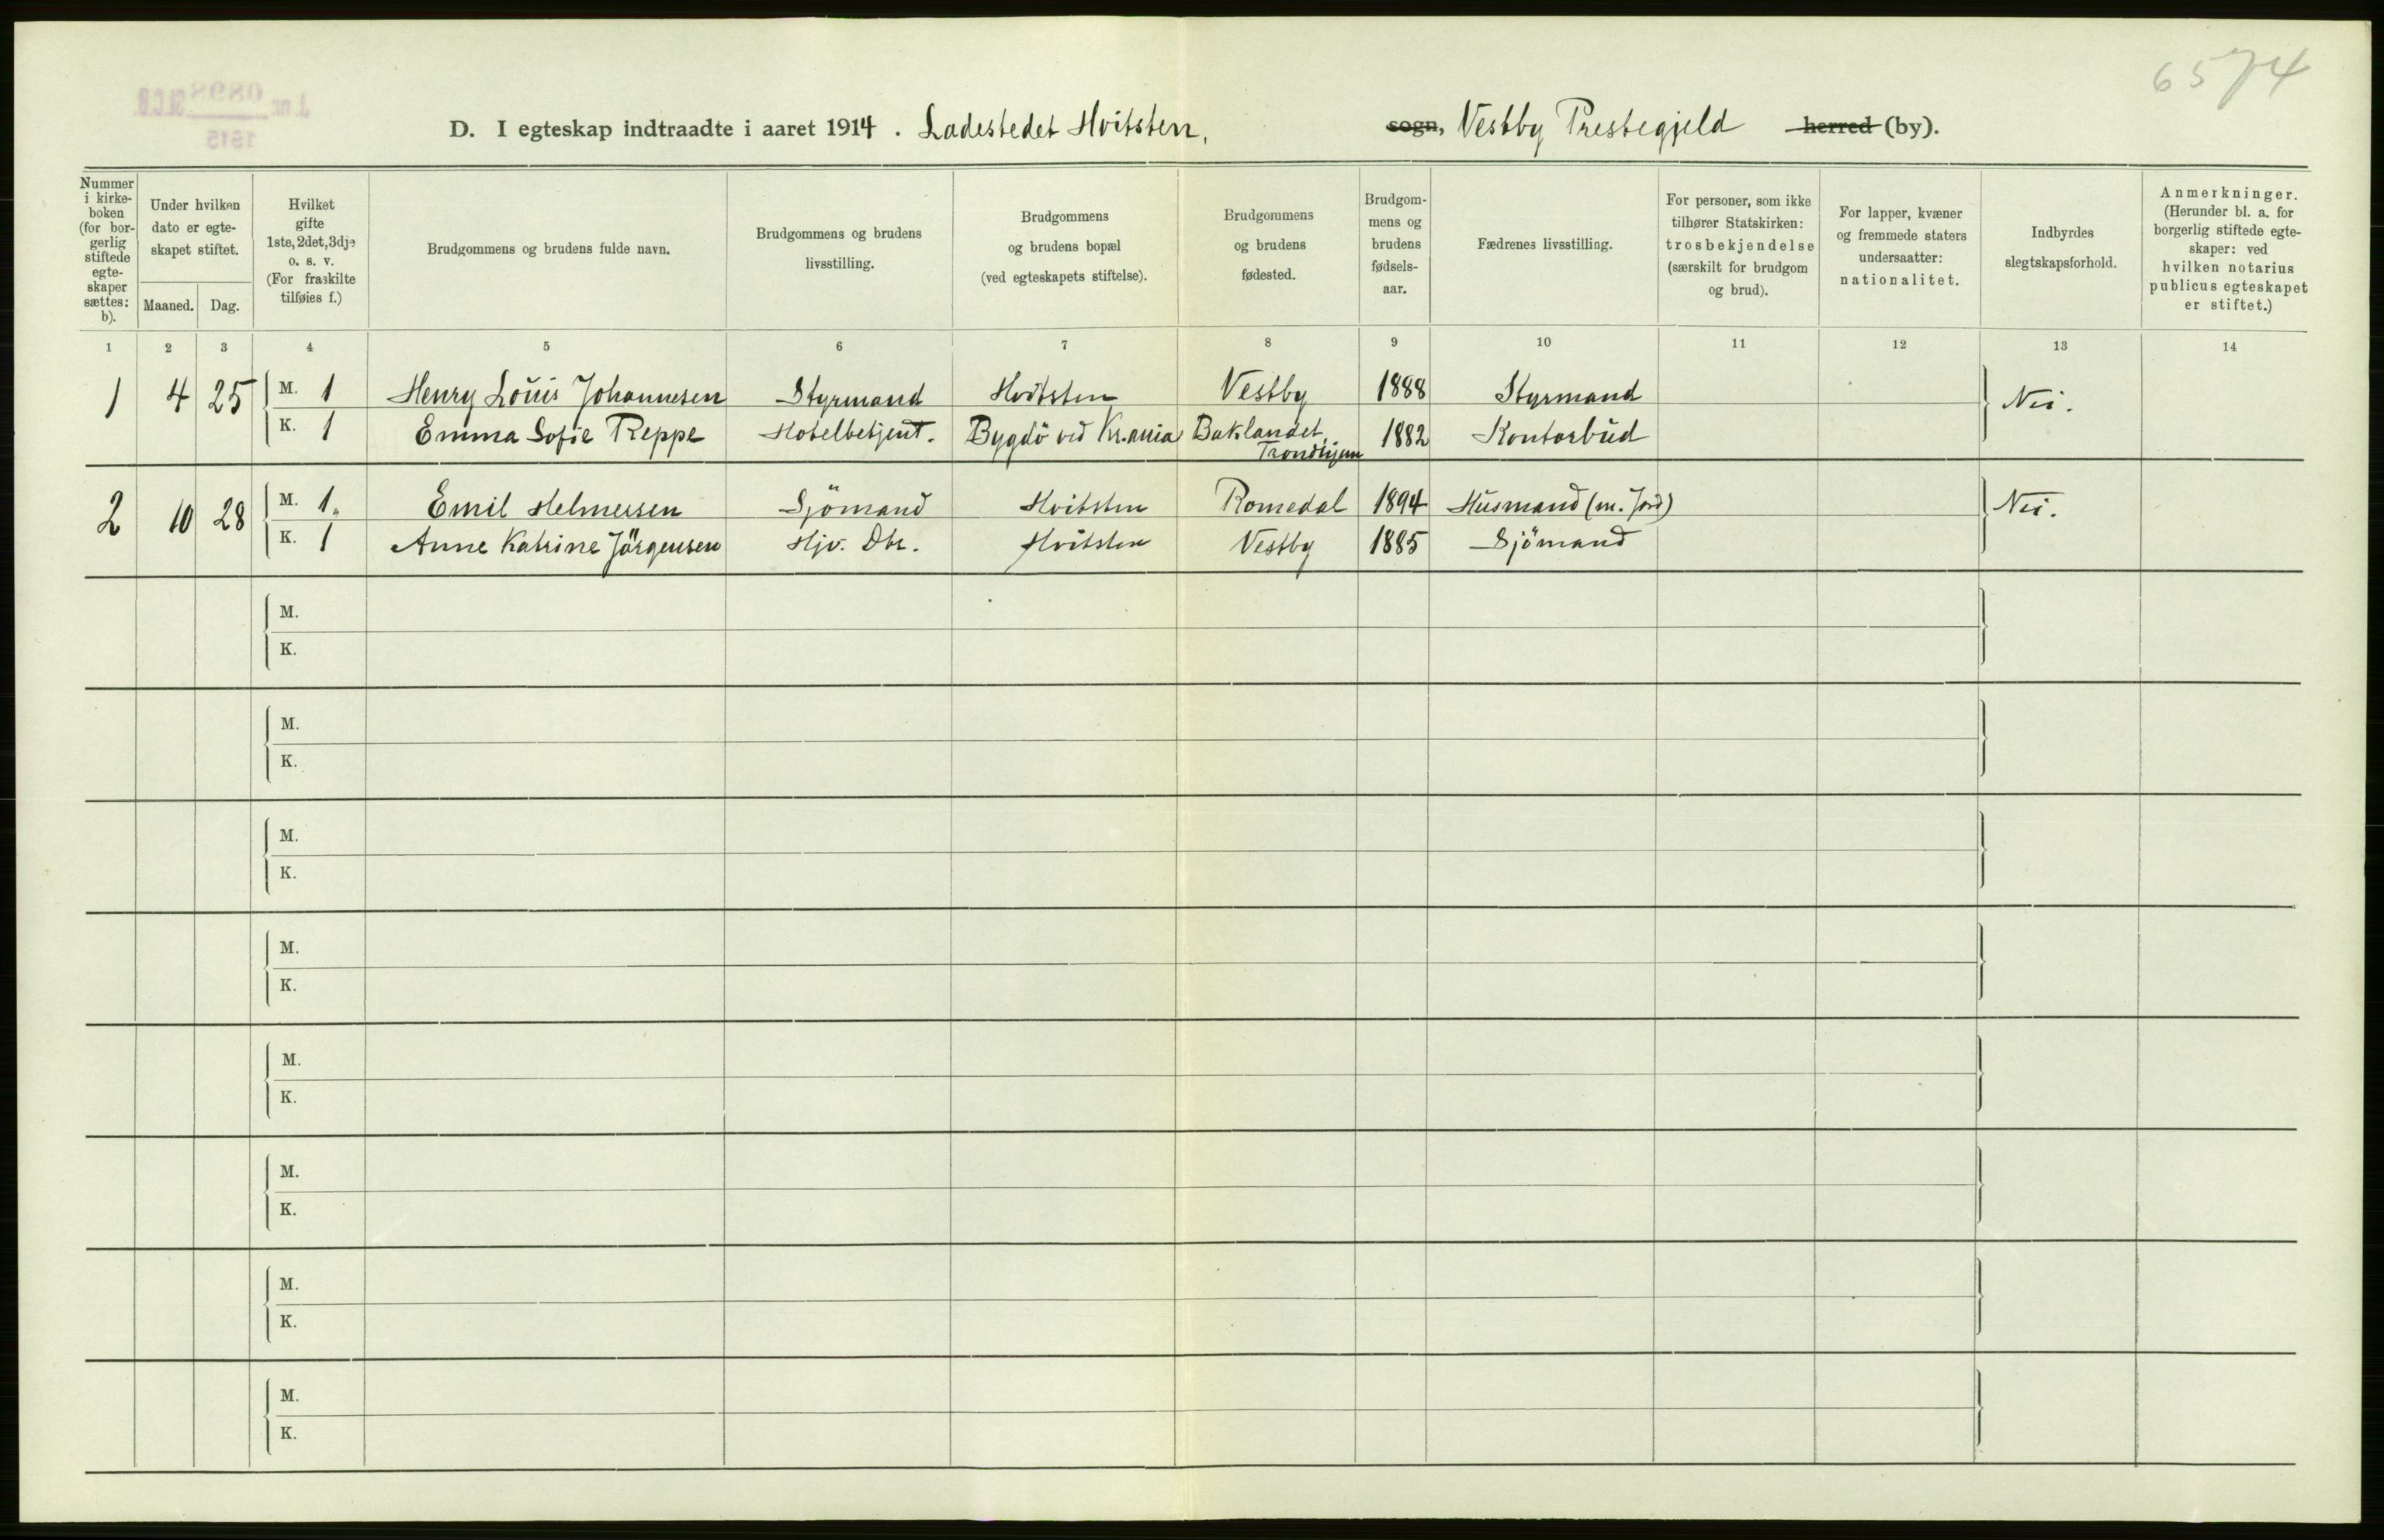 6574
J.nr. 0898 St.C.B.
1915
D. I egteskap indtraadte i aaret 1914. Ladestedet Hvitsten, sogn, Vestby Prestegjeld herred (by).
Nummer i kirke-boken (for bor-gerlig stiftede egte-skaper sættes: b).
Under hvilken dato er egte-skapet stiftet.
Maaned. Dag.
Hvilket gifte 1ste, 2det, 3dje o. s. v. (For fraskilte tilføies f.)
Brudgommens og brudens fulde navn.
Brudgommens og brudens livsstilling.
Brudgommens og brudens bopæl (ved egteskapets stiftelse).
Brudgommens og brudens fødested.
Brudgom-mens og brudens fødsels-aar.
Fædrenes livsstilling.
For personer, som ikke tilhører Statskirken: trosbekjendelse (særskilt for brudgom og brud).
For lapper, kvæner og fremmede staters undersaatter: nationalitet.
Indbyrdes slegtskapsforhold.
Anmerkninger. (Herunder bl. a. for borgerlig stiftede egte-skaper: ved hvilken notarius publicus egteskapet er stiftet.)
1 2 3 4 5 6 7 8 9 10 11 12 13 14
1 4 25 M. 1 Henry Louis Johannesen Styrmand Hvitsten Vestby 1888 Styrmand Nei.
K. 1 Emma Sofie Reppe Hotelbetjent. Bygdö ved Kr.ania Baklandet, Trondhjem 1882 Kontorbud
2 10 28 M. 1. Emil Helmersen Sjömand Hvitsten Romedal 1894 Husmand (m. Jord) Nei.
K. 1 Anne Katrine Jörgensen Hjv. Dtr. Hvitsten Vestby 1885 Sjömand
M.
K.
M.
K.
M.
K.
M.
K.
M.
K.
M.
K.
M.
K.
M.
K.